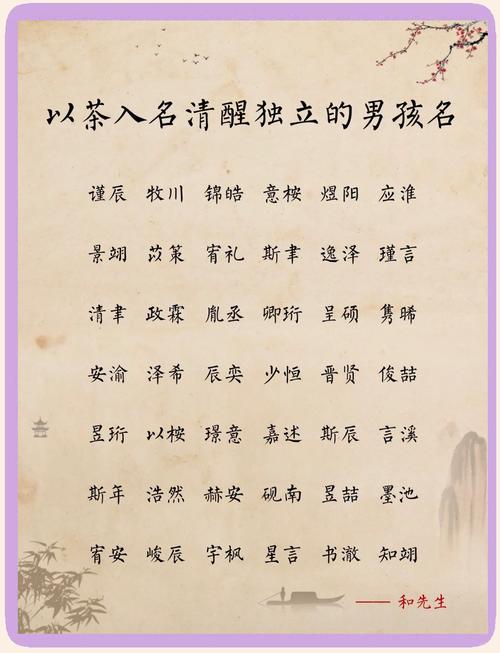 以茶入名清醒独立的男孩名
谨辰 牧川 锦皓 意桉 煜阳 应淮
景翊 苡策 宥礼 斯聿 逸泽 瑾言
清聿 政霖 胤丞 卿珩 呈硕 隽晞
安渝 泽希 辰奕 少恒 晋贤 俊喆
昱珩 以桉 璟意 嘉述 斯辰 言溪
斯年 浩然 赫安 砚南 昱喆 墨池
宥安 峻辰 宇枫 星言 书澈 知翊
—— 和先生